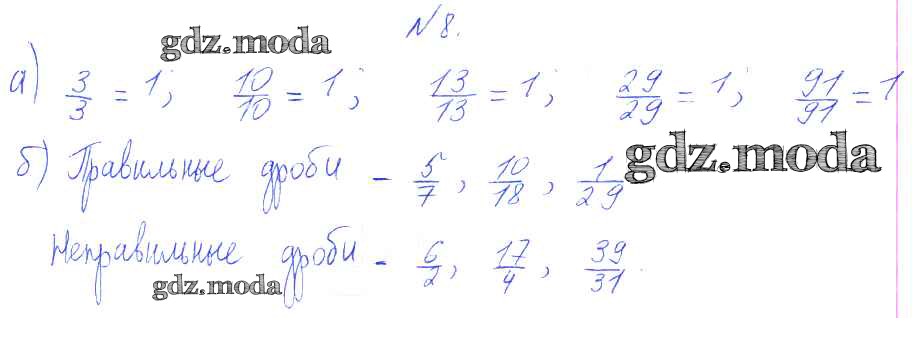 gdz.moda
№8.
а) 3/3 = 1; 10/10 = 1; 13/13 = 1; 29/29 = 1; 91/91 = 1
б) Правильные дроби - 5/7, 10/18, 1/29
gdz.moda
Неправильные дроби - 6/2, 17/4, 39/31.
gdz.moda